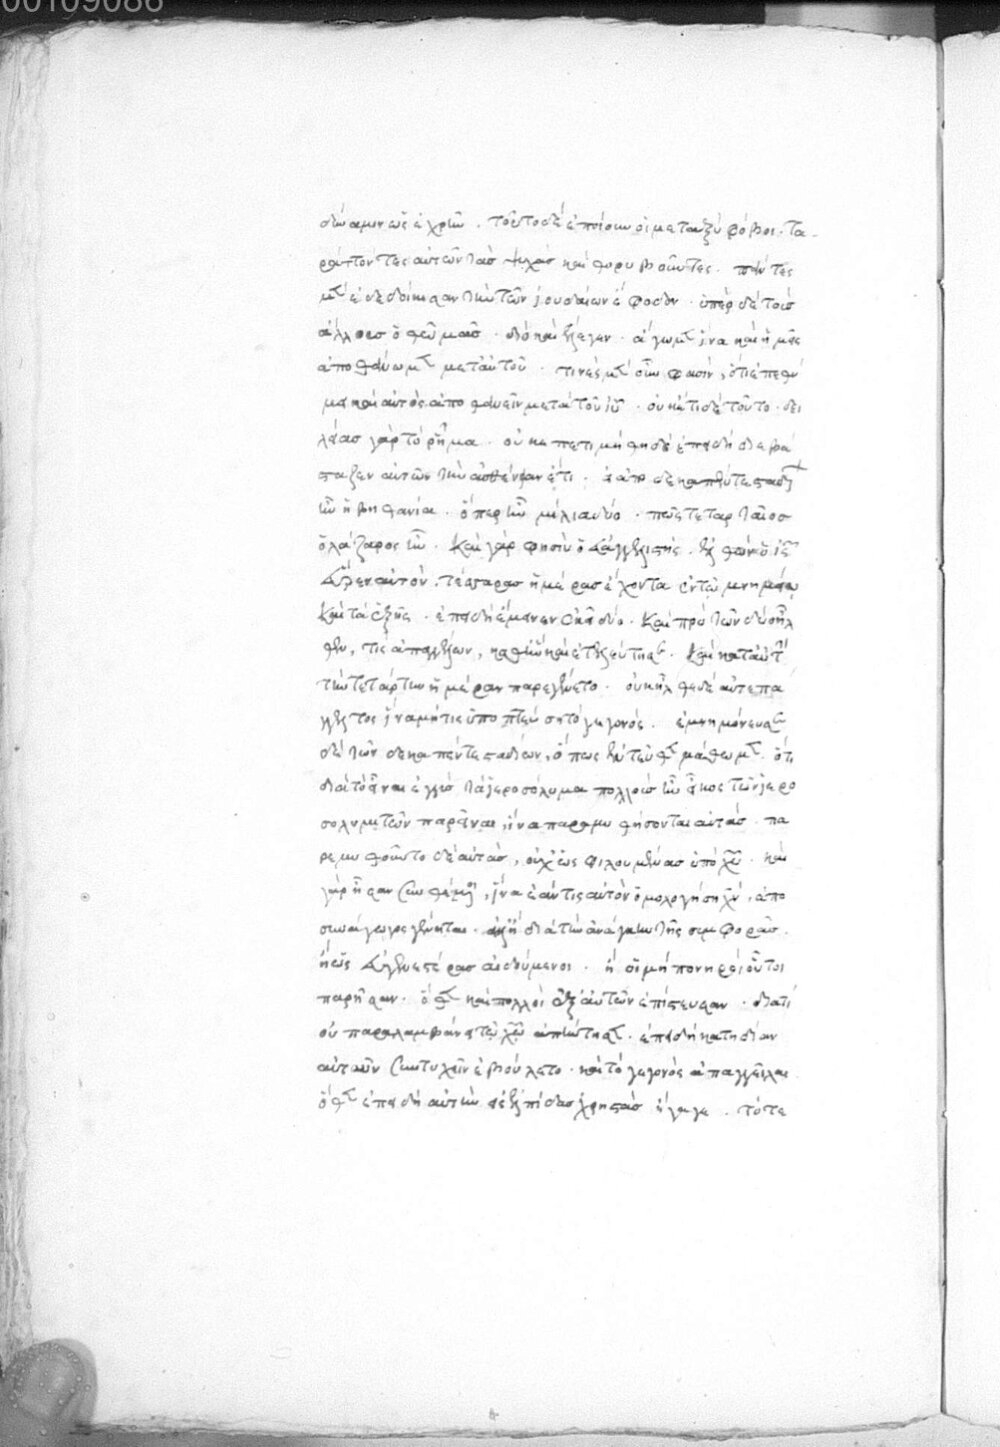 00109088
δύναμιν ὡς ἐχρῆν. τοῦτο δὲ ἐποίουν οἱ μεταξὺ φόβοι. τα
ράττοντες αὐτῶν τὰς ψυχὰς καὶ θορυβοῦντες. πάντες
μὲν ἐδεδοίκεσαν τὴν τῶν ἰουδαίων ἔφοδον. ὑπὲρ δὲ τοὺς
ἄλλους ὁ θωμᾶς. διὸ καὶ ἔλεγεν. ἄγωμεν ἵνα καὶ ἡμεῖς
ἀποθάνωμεν μετ' αὐτοῦ. τινὲς μὲν οὖν φασὶν, ὅτι ἐπεθύ
μει καὶ αὐτὸς ἀποθανεῖν μετὰ τοῦ ιυ. οὐκ ἔτι δὲ τοῦτο. δει
λίας γὰρ τὸ ῥῆμα. οὐκ ἐπετιμήθη δὲ ἐπειδὴ διεβά
σταζεν αὐτῶν τὴν ἀσθένειαν ἔτι. ἀπὸ δεκαπέντε σταδίων
ἦν ἡ βηθανία. ὅπερ ἦν μίλια δύο. πῶς τεταρταῖος
ὁ λάζαρος ἦν. καὶ γάρ φησιν ὁ εὐαγγελιστής. ἐλθὼν ὁ ις
εὗρεν αὐτὸν, τέσσαρας ἡμέρας ἔχοντα ἐν τῷ μνημείῳ
καὶ τὰ ἑξῆς. ἐπειδὴ ἔμεινεν ἐκεῖ δύο. καὶ πρὸ τῶν δύο ἦλ
θεν, τις ἀπαγγέλλων, καθ' ἣν καὶ ἐτελεύτησεν. καὶ κατ' αὐτὴν
τὴν τετάρτην ἡμέραν παρεγένετο. οὐκ ἦλθε δὲ αὐτεπά
γγελτος ἵνα μή τις ὑποπτεύσῃ τὸ γεγονός. ἐμνημόνευσεν
δὲ τῶν δεκαπέντε σταδίων, ὅπως ἐντεῦθεν μάθωμεν. ὅτι
διὰ τὸ εἶναι ἐγγὺς τὰ ἱεροσόλυμα πολλοὺς ἦν εἰκὸς τῶν ἱερο
σολυμιτῶν παρεῖναι, ἵνα παραμυθήσονται αὐτάς. πα
ρεμυθοῦντο δὲ αὐτὰς, οὐχ ὡς φιλουμένας ὑπὸ χυ. καὶ
γὰρ ἦσαν συνθέμενοι, ἵνα ἐάν τις αὐτὸν ὁμολογήσῃ χν, ἀπο
συνάγωγος γένηται. ἀλλ' ἢ διὰ τὴν ἀνάγκην τῆς συμφορᾶς.
ἢ ὡς εὐγενεστέρας αἰδούμενοι. ἢ οἱ μὴ πονηροὶ οὗτοι
παρῆσαν. ὅθεν καὶ πολλοὶ ἐξ αὐτῶν ἐπίστευσαν. διατί
οὐ παραλαμβάνει τῷ χω ἀπαντήσασα. ἐπειδὴ κατ' ἰδίαν
αὐτῷ συντυχεῖν ἐβούλετο. καὶ τὸ γεγονὸς ἀπαγγεῖλαι.
ὅθεν ἐπειδὴ αὐτὴν εἰς ἐλπίδας χρηστὰς ἤγαγε. τότε